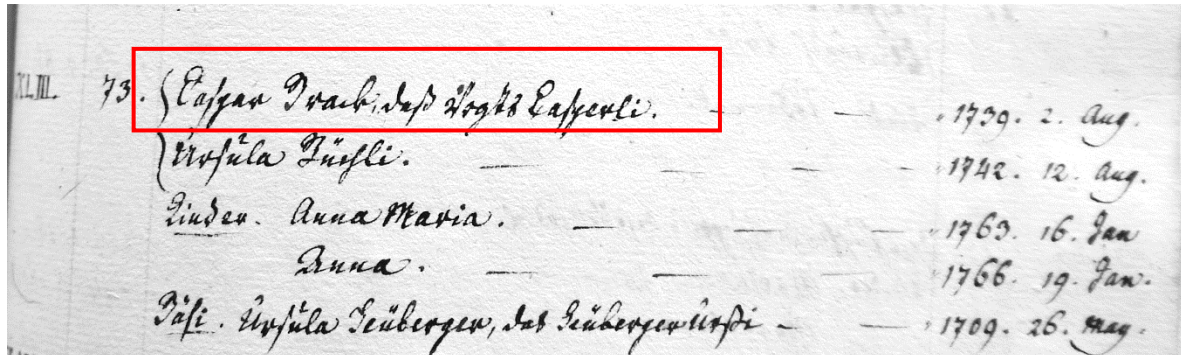 XLIII. 73. Caspar Drack, deß Vogts Casperli. - - 1739. 2. Aug.
Ursula Büchli. - - - 1742. 12. Aug.
Kinder. Anna Maria. - - - 1763. 16. Jan
Anna. - - - 1766. 19. Jan.
Ursula Leüberger, des Leüberger Urßi - - 1709. 26. May.